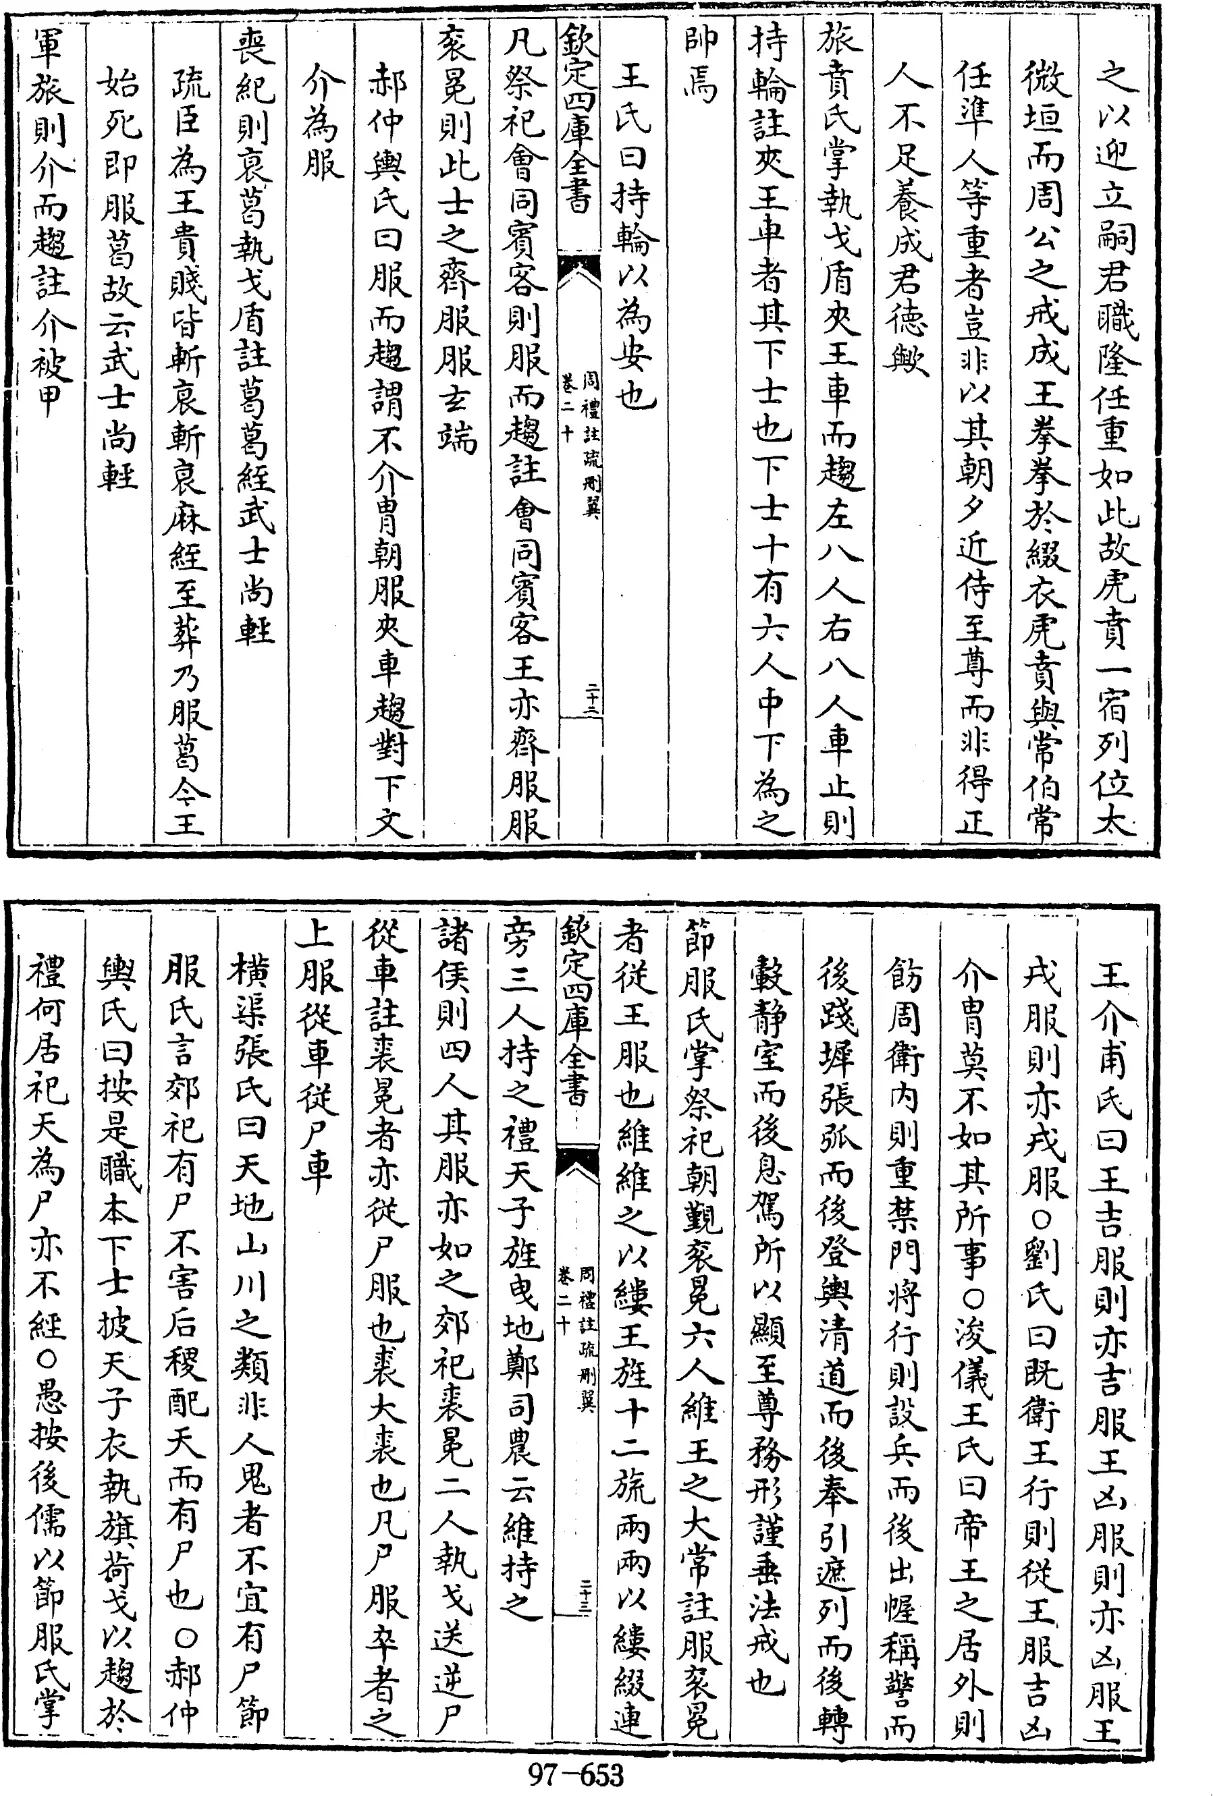 之以迎立嗣君職隆任重如此故虎賁一宿列位太
微垣而周公之戒成王拳拳於綴衣虎賁與常伯常
任準人等重者豈非以其朝夕近侍至尊而非得正
人不足養成君德歟
旅賁氏掌執戈盾夾王車而趨左八人右八人車止則
持輪註夾王車者其下士也下士十有六人中下為之
帥焉
王氏曰持輪以為安也
欽定四庫全書
周禮註疏刪翼
卷二十
二十二
凡祭祀會同賓客則服而趨註會同賓客王亦齊服服
衮冕則此士之齊服服玄端
郝仲輿氏曰服而趨謂不介胄朝服夾車趨對下文
介為服
喪紀則衰葛執戈盾註葛葛絰武士尚輕
疏臣為王貴賤皆斬衰斬衰麻絰至葬乃服葛今王
始死即服葛故云武士尚輕
軍旅則介而趨註介被甲
王介甫氏曰王吉服則亦吉服王凶服則亦凶服王
戎服則亦戎服○劉氏曰既衛王行則從王服吉凶
介胄莫不如其所事○浚儀王氏曰帝王之居外則
飭周衛內則重禁門將行則設兵而後出幄稱警而
後踐墀張弧而後登輿清道而後奉引遮列而後轉
轂靜室而後息駕所以顯至尊務形謹垂法戒也
節服氏掌祭祀朝覲衮冕六人維王之大常註服衮冕
者從王服也維維之以縷王旌十二旒兩兩以縷綴連
欽定四庫全書
周禮註疏刪翼
卷二十
二十三
旁三人持之禮天子旌曳地鄭司農云維持之
諸侯則四人其服亦如之郊祀裘冕二人執戈送逆尸
從車註裘冕者亦從尸服也裘大裘也凡尸服卒者之
上服從車從尸車
橫渠張氏曰天地山川之類非人鬼者不宜有尸節
服氏言郊祀有尸不害后稷配天而有尸也○郝仲
輿氏曰按是職本下士披天子衣執旗荷戈以趨於
禮何居祀天為尸亦不經○愚按後儒以節服氏掌
97-653